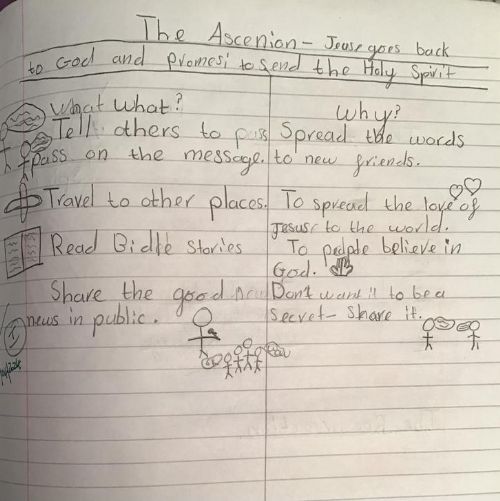 The Ascenion - Jesuse goes back
to God and promesi to send the Holy Spirit
What what?
Tell others to pass
pass on the message.
Travel to other places.
Read Bidle stories
Share the good new
news in public.
Why?
Spread the words
to new friends.
To spread the love of
Jesus to the world.
To people believe in
God.
Don't want it to be a
secret - Share it.